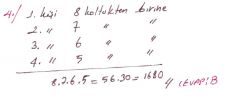 4-) 1. kişi 8 koltuktan birine
2. " 7 " "
3. " 6 " "
4. " 5 " "
8.7.6.5 = 56.30 = 1680
CEVAP: B